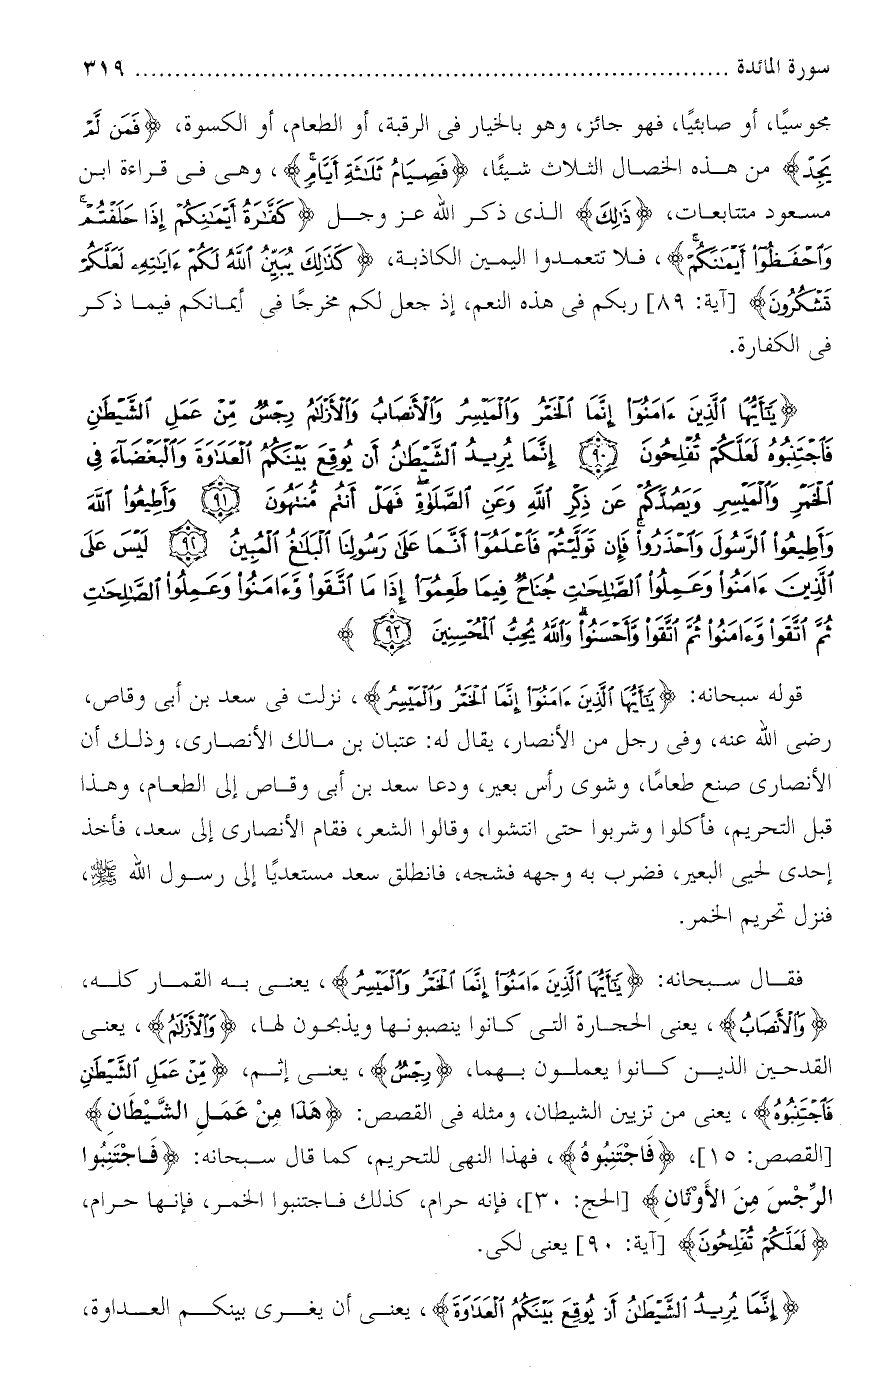 سورة المائدة ........................................................................... ٣١٩
مجوسيًا، أو صابئيًا، فهو جائز، وهو بالخيار فى الرقبة، أو الطعام، أو الكسوة، ﴿فَمَن لَّمْ
يَجِدْ﴾ من هذه الخصال الثلاث شيئًا، ﴿فَصِيَامُ ثَلَاثَةِ أَيَّامٍ﴾، وهى فى قراءة ابن
مسعود متتابعات، ﴿ذَٰلِكَ﴾ الذى ذكر الله عز وجل ﴿كَفَّارَةُ أَيْمَانِكُمْ إِذَا حَلَفْتُمْ ۚ
وَٱحْفَظُوٓا۟ أَيْمَانَكُمْ ۚ﴾، فلا تتعمدوا اليمين الكاذبة، ﴿كَذَٰلِكَ يُبَيِّنُ ٱللَّهُ لَكُمْ ءَايَاتِهِۦ لَعَلَّكُمْ
تَشْكُرُونَ﴾ [آية: ٨٩] ربكم فى هذه النعم، إذ جعل لكم مخرجًا فى أيمانكم فيما ذكر
فى الكفارة.
﴿يَـٰٓأَيُّهَا ٱلَّذِينَ ءَامَنُوٓا۟ إِنَّمَا ٱلْخَمْرُ وَٱلْمَيْسِرُ وَٱلْأَنصَابُ وَٱلْأَزْلَـٰمُ رِجْسٌ مِّنْ عَمَلِ ٱلشَّيْطَـٰنِ
فَٱجْتَنِبُوهُ لَعَلَّكُمْ تُفْلِحُونَ ٩٠ إِنَّمَا يُرِيدُ ٱلشَّيْطَـٰنُ أَن يُوقِعَ بَيْنَكُمُ ٱلْعَدَاوَةَ وَٱلْبَغْضَآءَ فِى
ٱلْخَمْرِ وَٱلْمَيْسِرِ وَيَصُدَّكُمْ عَن ذِكْرِ ٱللَّهِ وَعَنِ ٱلصَّلَوٰةِ ۖ فَهَلْ أَنتُم مُّنتَهُونَ ٩١ وَأَطِيعُوا۟ ٱللَّهَ
وَأَطِيعُوا۟ ٱلرَّسُولَ وَٱحْذَرُوا۟ ۚ فَإِن تَوَلَّيْتُمْ فَٱعْلَمُوٓا۟ أَنَّمَا عَلَىٰ رَسُولِنَا ٱلْبَلَـٰغُ ٱلْمُبِينُ ٩٢ لَيْسَ عَلَى
ٱلَّذِينَ ءَامَنُوا۟ وَعَمِلُوا۟ ٱلصَّـٰلِحَـٰتِ جُنَاحٌ فِيمَا طَعِمُوٓا۟ إِذَا مَا ٱتَّقَوا۟ وَّءَامَنُوا۟ وَعَمِلُوا۟ ٱلصَّـٰلِحَـٰتِ
ثُمَّ ٱتَّقَوا۟ وَّءَامَنُوا۟ ثُمَّ ٱتَّقَوا۟ وَّأَحْسَنُوا۟ ۗ وَٱللَّهُ يُحِبُّ ٱلْمُحْسِنِينَ ٩٣﴾
قوله سبحانه: ﴿يَـٰٓأَيُّهَا ٱلَّذِينَ ءَامَنُوٓا۟ إِنَّمَا ٱلْخَمْرُ وَٱلْمَيْسِرُ﴾، نزلت فى سعد بن أبى وقاص،
رضى الله عنه، وفى رجل من الأنصار، يقال له: عتبان بن مالك الأنصارى، وذلك أن
الأنصارى صنع طعامًا، وشوى رأس بعير، ودعا سعد بن أبى وقاص إلى الطعام، وهذا
قبل التحريم، فأكلوا وشربوا حتى انتشوا، وقالوا الشعر، فقام الأنصارى إلى سعد، فأخذ
إحدى لحيى البعير، فضرب به وجهه فشجه، فانطلق سعد مستعديًا إلى رسول الله ﷺ،
فنزل تحريم الخمر.
فقال سبحانه: ﴿يَـٰٓأَيُّهَا ٱلَّذِينَ ءَامَنُوٓا۟ إِنَّمَا ٱلْخَمْرُ وَٱلْمَيْسِرُ﴾، يعنى به القمار كله،
﴿وَٱلْأَنصَابُ﴾، يعنى الحجارة التى كانوا ينصبونها ويذبحون لها، ﴿وَٱلْأَزْلَـٰمُ﴾، يعنى
القدحين الذين كانوا يعملون بهما، ﴿رِجْسٌ﴾، يعنى إثم، ﴿مِّنْ عَمَلِ ٱلشَّيْطَـٰنِ
فَٱجْتَنِبُوهُ﴾، يعنى من تزيين الشيطان، ومثله فى القصص: ﴿هَذَا مِنْ عَمَلِ الشَّيْطَانِ﴾
[القصص: ١٥]، ﴿فَاجْتَنِبُوهُ﴾، فهذا النهى للتحريم، كما قال سبحانه: ﴿فَاجْتَنِبُوا
الرِّجْسَ مِنَ الأَوْثَانِ﴾ [الحج: ٣٠]، فإنه حرام، كذلك فاجتنبوا الخمر، فإنها حرام،
﴿لَعَلَّكُمْ تُفْلِحُونَ﴾ [آية: ٩٠] يعنى لكى.
﴿إِنَّمَا يُرِيدُ ٱلشَّيْطَـٰنُ أَن يُوقِعَ بَيْنَكُمُ ٱلْعَدَاوَةَ﴾، يعنى أن يغرى بينكم العداوة،